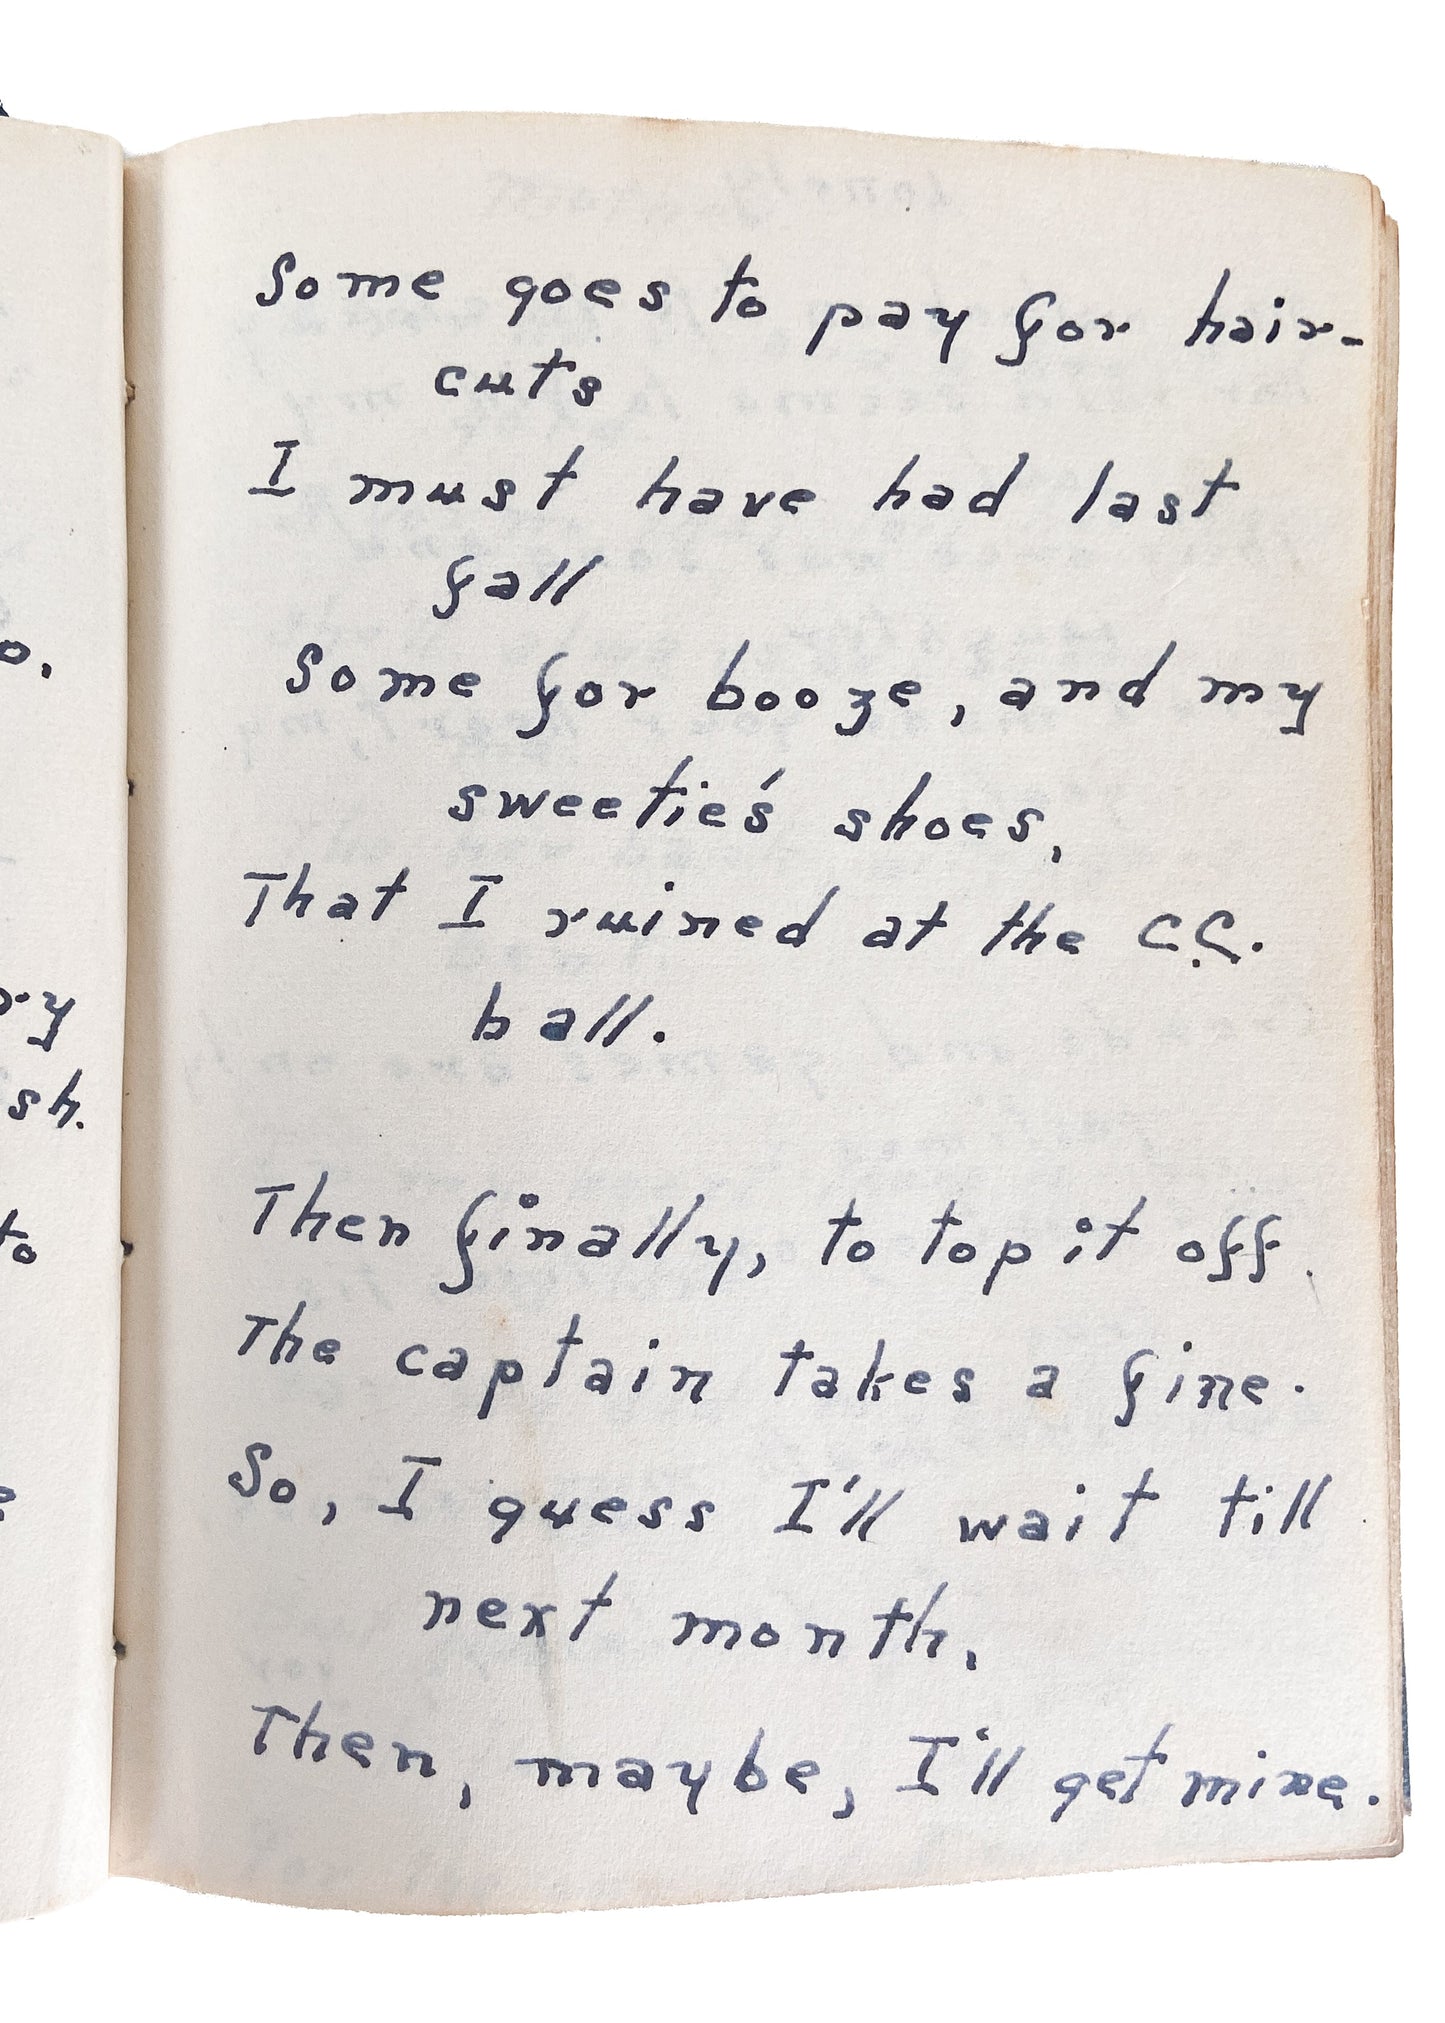 Some goes to pay for hair-
cuts
I must have had last
fall
Some for booze, and my
sweetie's shoes,
That I ruined at the C.C.
ball.
Then finally, to top it off.
The captain takes a fine.
So, I guess I'll wait till
next month,
Then, maybe, I'll get mine.